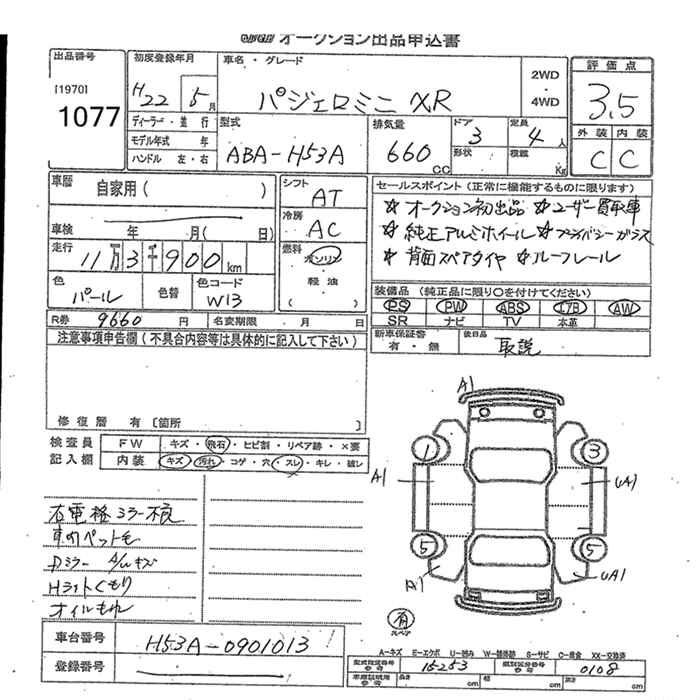 オークション出品申込書
出品番号
[1970]
1077
初度登録年月
H22 5月
車名・グレード
パジェロミニ XR
2WD
・
4WD
評価点
3.5
外装 内装
C C
ディーラー・並行
モデル年式 年
ハンドル 左・右
型式
ABA-H53A
排気量
660 CC
ドア 3
形状
定員 4人
積載 Kg
車歴 自家用( )
車検 年 月( 日)
走行 11万3千900km
色 パール
色替
色コード W13
シフト AT
冷房 AC
燃料 ガソリン
・
軽油
セールスポイント(正常に機能するものに限ります)
☆オークション初出品 ☆ユーザー買取車
☆純正アルミホイール ☆プライバシーガラス
☆背面スペアタイヤ ☆ルーフレール
装備品(純正品に限り○を付けてください)
PS PW ABS エアB AW
SR ナビ TV 本革
R券 9660円 名変期限 月 日
新車保証書 有・無
後日品 取説
注意事項申告欄(不具合内容等は具体的に記入して下さい)
修復歴 有 [箇所 ]
検査員
記入欄
FW キズ・飛石・ヒビ割・リペア跡・×要
内装 キズ・汚れ・コゲ・穴・スレ・キレ・破レ
右電格ミラー不良
車内ペット毛
Dミラー A/Wキズ
Hライトくもり
オイルもれ
A1
1 3
A1 UA1
5 5
A1 UA1
有
スペア
車台番号 H53A-0901013
登録番号
A-キズ E-エクボ U-凹み W-補修跡 S-サビ C-腐食 XX-交換済
型式指定番号 参考 15253
類別区分番号 参考 0108
車庫証明用 参考 長さ cm 幅 cm 高さ cm